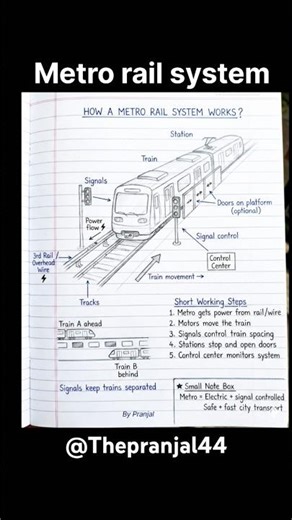 Metro rail system
HOW A METRO RAIL SYSTEM WORKS?
Station
Train
Signals
Doors on platform
(optional)
Power
flow
Signal control
3rd Rail /
Overhead
Wire
Control
Center
Train movement →
Tracks
Train A ahead
Train B
behind
Signals keep trains separated
Short Working Steps
1. Metro gets power from rail/wire
2. Motors move the train
3. Signals control train spacing
4. Stations stop and open doors
5. Control center monitors system
★ Small Note Box
Metro = Electric + signal controlled
Safe + fast city transport
By Pranjal
@Thepranjal44